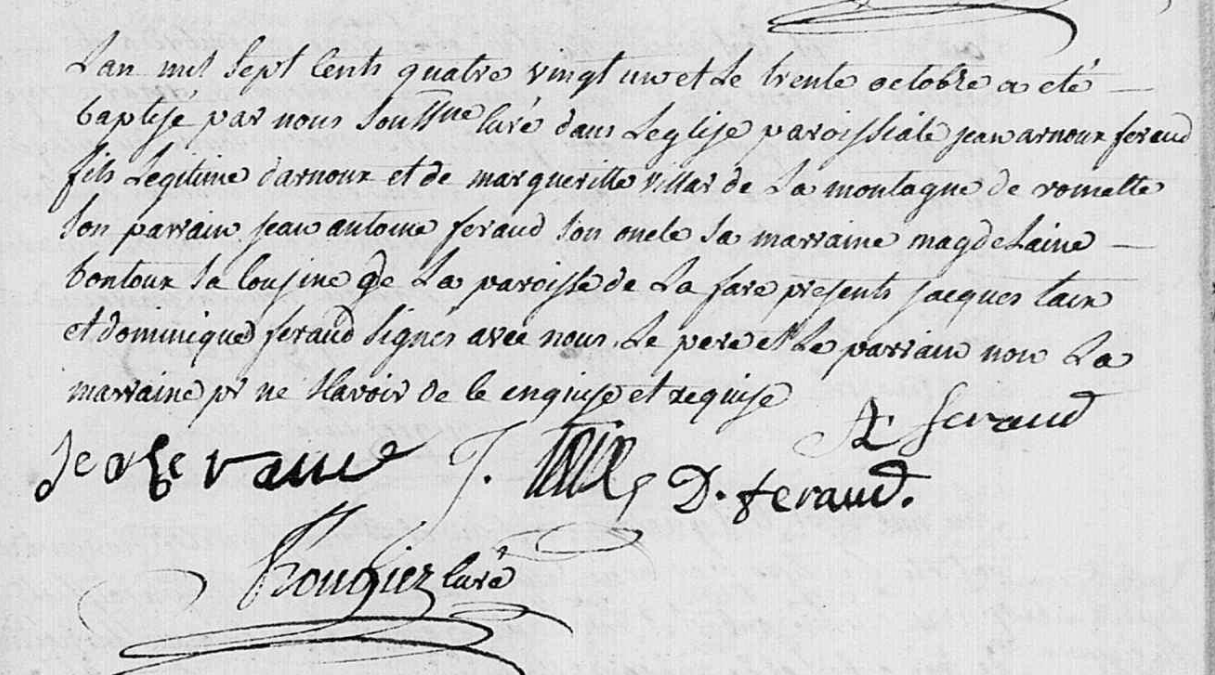 L'an mil sept cents quatre vingt un et le trente octobre a eté
baptisé par nous soussne curé dans l'eglise paroissiale jean arnoux feraud
fils legitime d'arnoux et de margueritte villar de la montagne de romette
son parrain jean antoine feraud son oncle sa marraine magdelaine
bontoux sa cousine de la paroisse de la fare presents jacques taix
et dominique feraud signes avec nous le pere et le parrain non la
marraine pr ne scavoir de ce enquise et requise
A feraud
J. D. feraud.
Rougiez curé